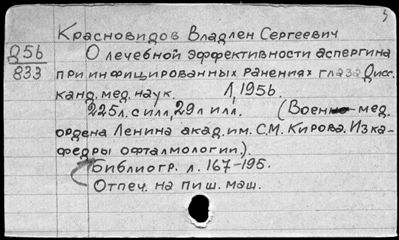 5
Красновидов Владлен Сергеевич
Д56
833
О лечебной эффективности аспергина
при инфицированных ранениях глаза Дисс.
канд. мед. наук. Л, 1956.
225л. с илл, 29л илл. (Военно-мед.
ордена Ленина акад. им. С.М. Кирова. Из ка-
федры офталмологии).
Библиогр. л. 167-195.
Отпеч. на пиш. маш.